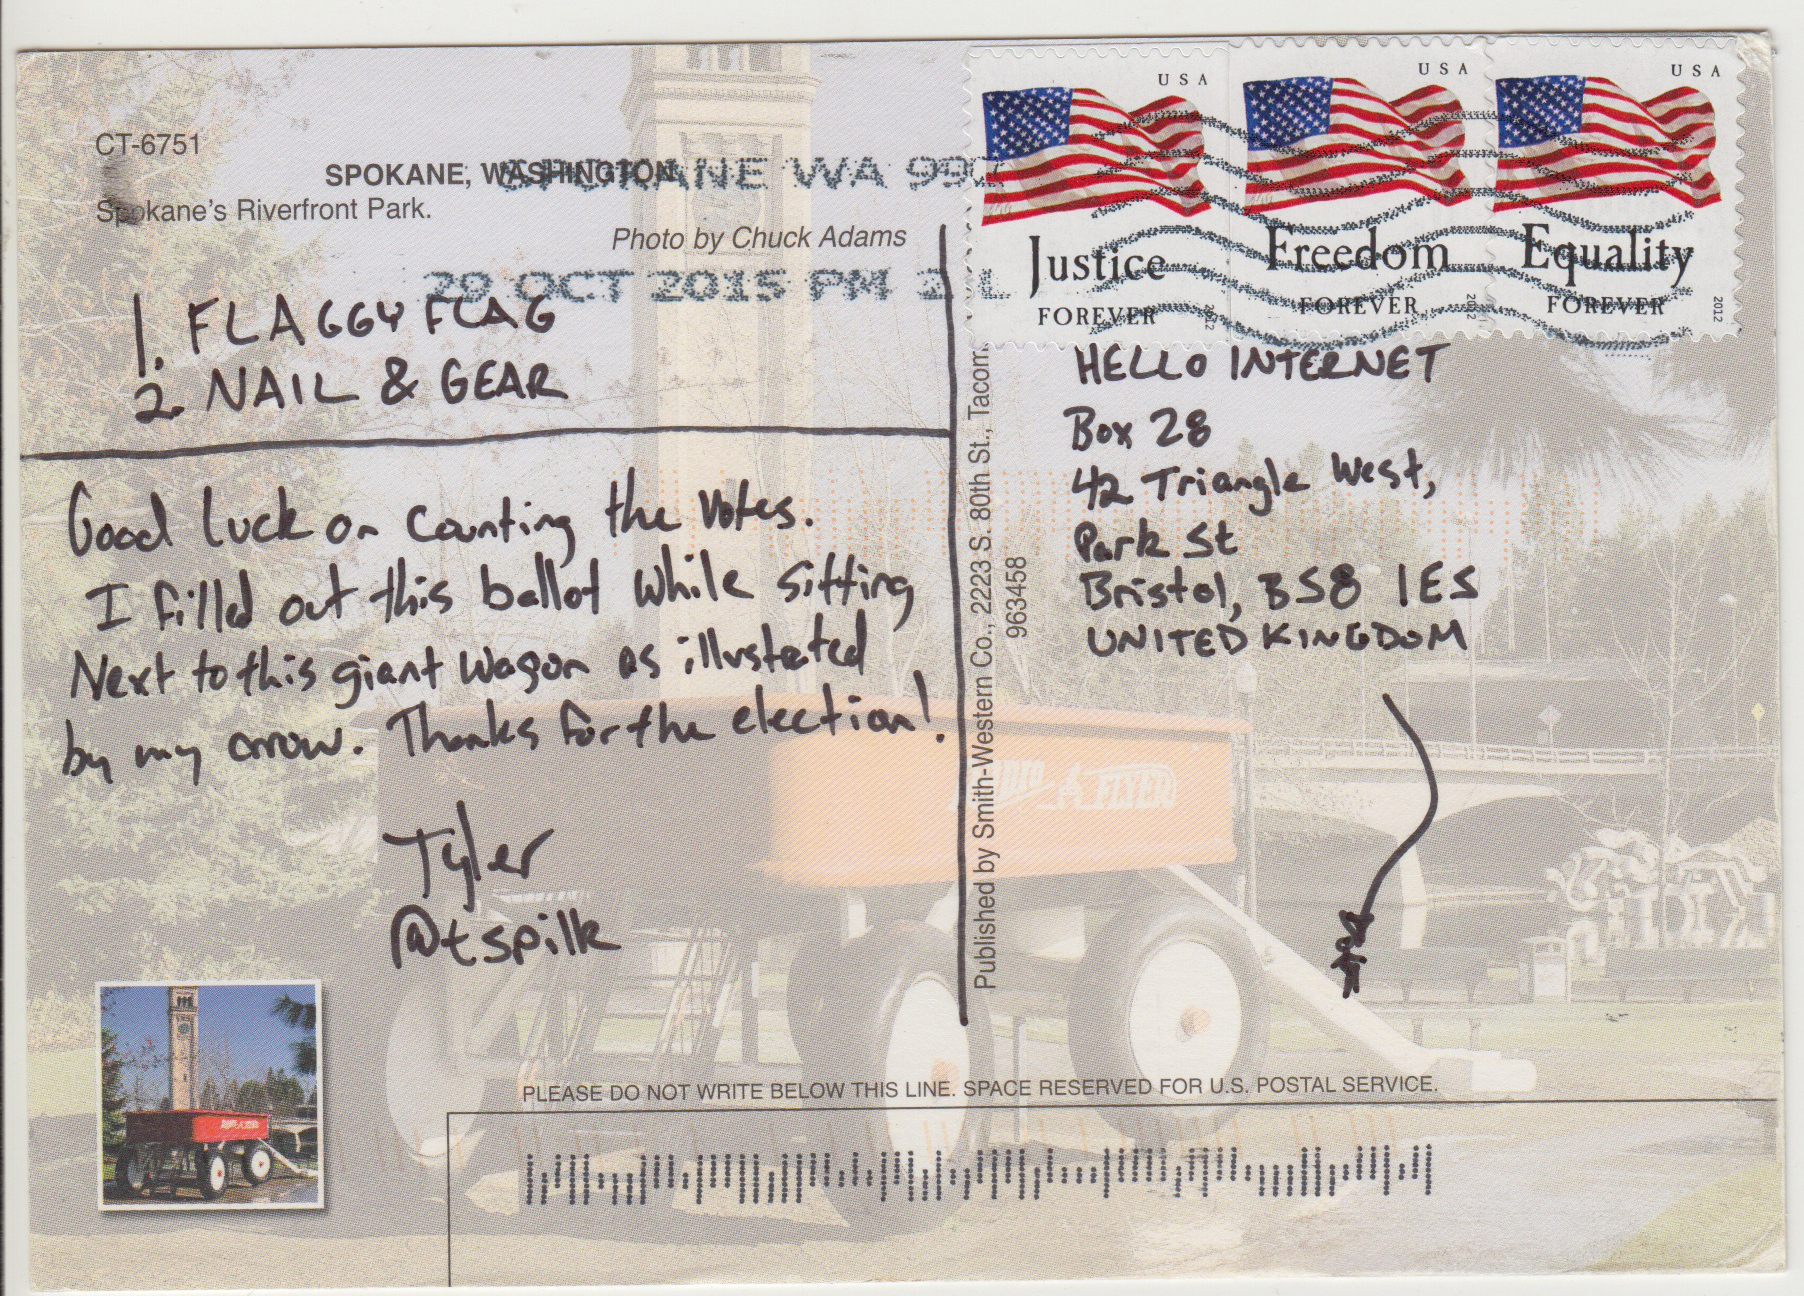 CT-6751
SPOKANE, WASHINGTON
Spokane's Riverfront Park.
Photo by Chuck Adams
SPOKANE WA 99
29 OCT 2015 PM 2 L
USA
Justice
FOREVER
2012
USA
Freedom
FOREVER
2012
USA
Equality
FOREVER
2012
1. FLAGGY FLAG
2. NAIL & GEAR
Good luck on counting the votes.
I filled out this ballot while sitting
Next to this giant wagon as illustrated
by my arrow. Thanks for the election!
Tyler
@tspilk
Published by Smith-Western Co., 2223 S. 80th St., Tacom
963458
HELLO INTERNET
Box 28
42 Triangle West,
Park St
Bristol, BS8 1ES
UNITED KINGDOM
RADIO FLYER
PLEASE DO NOT WRITE BELOW THIS LINE. SPACE RESERVED FOR U.S. POSTAL SERVICE.